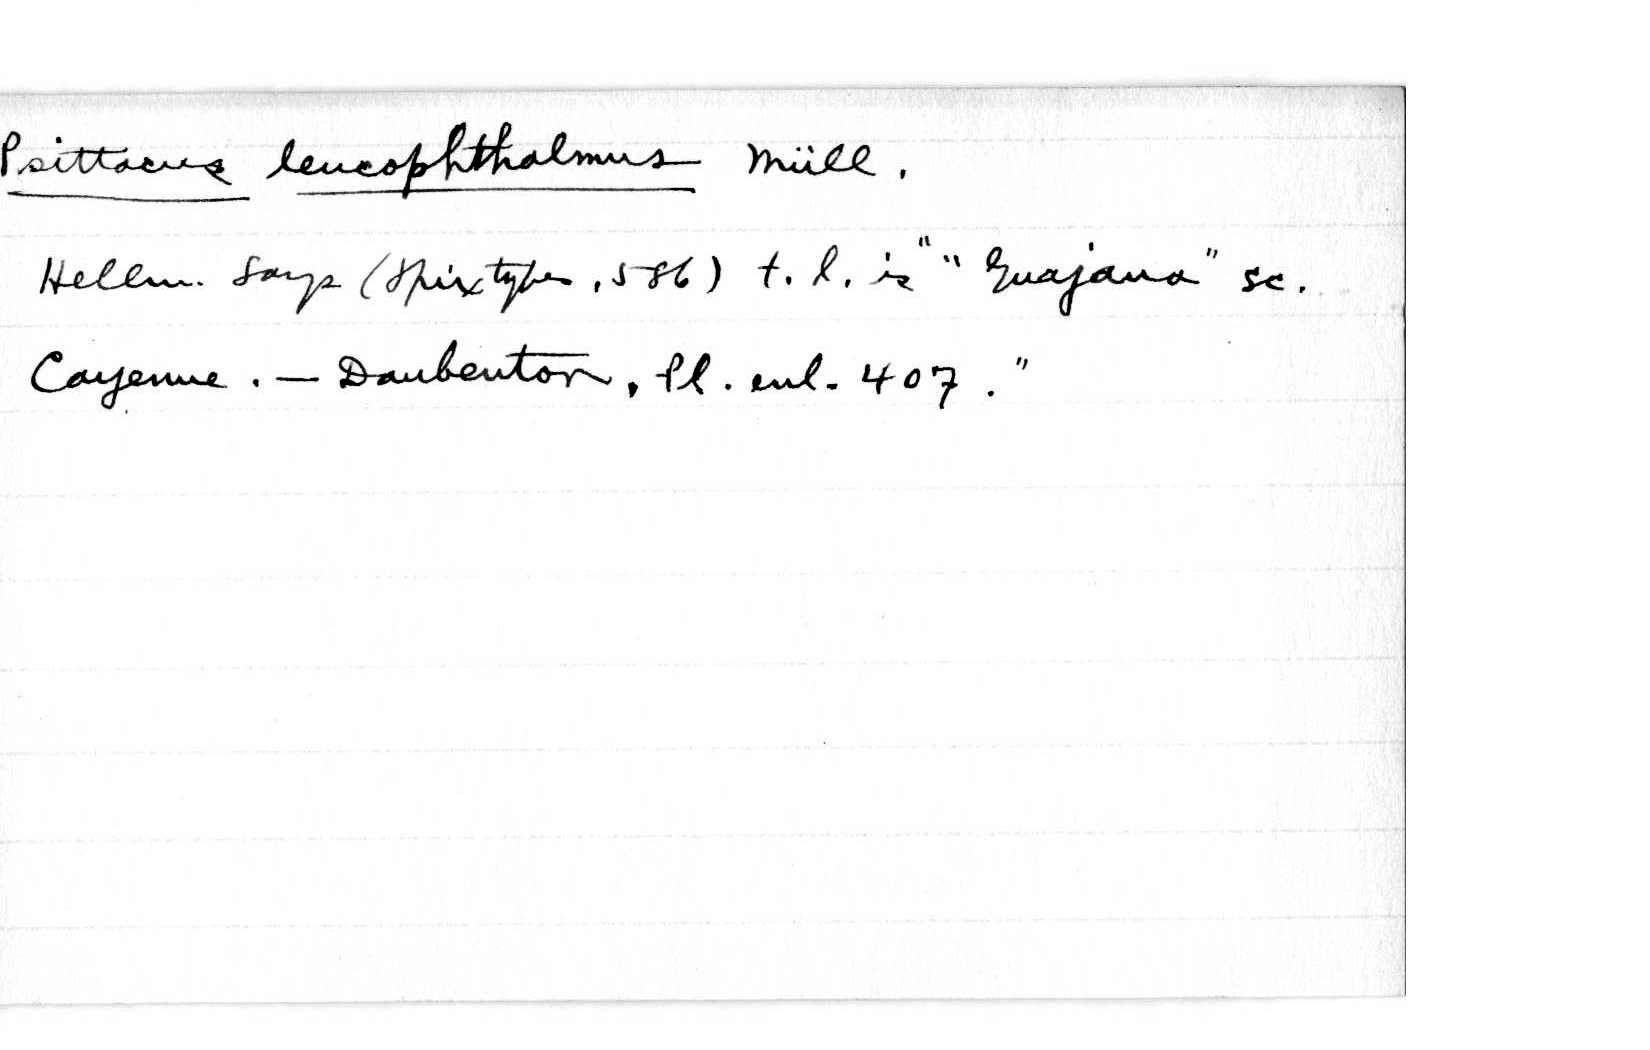 Psittacus leucophthalmus Müll.
Hellm. says (Spix types, 586) t. l. is " " Guajana" sc.
Cayenne. — Daubenton, Pl. enl. 407."